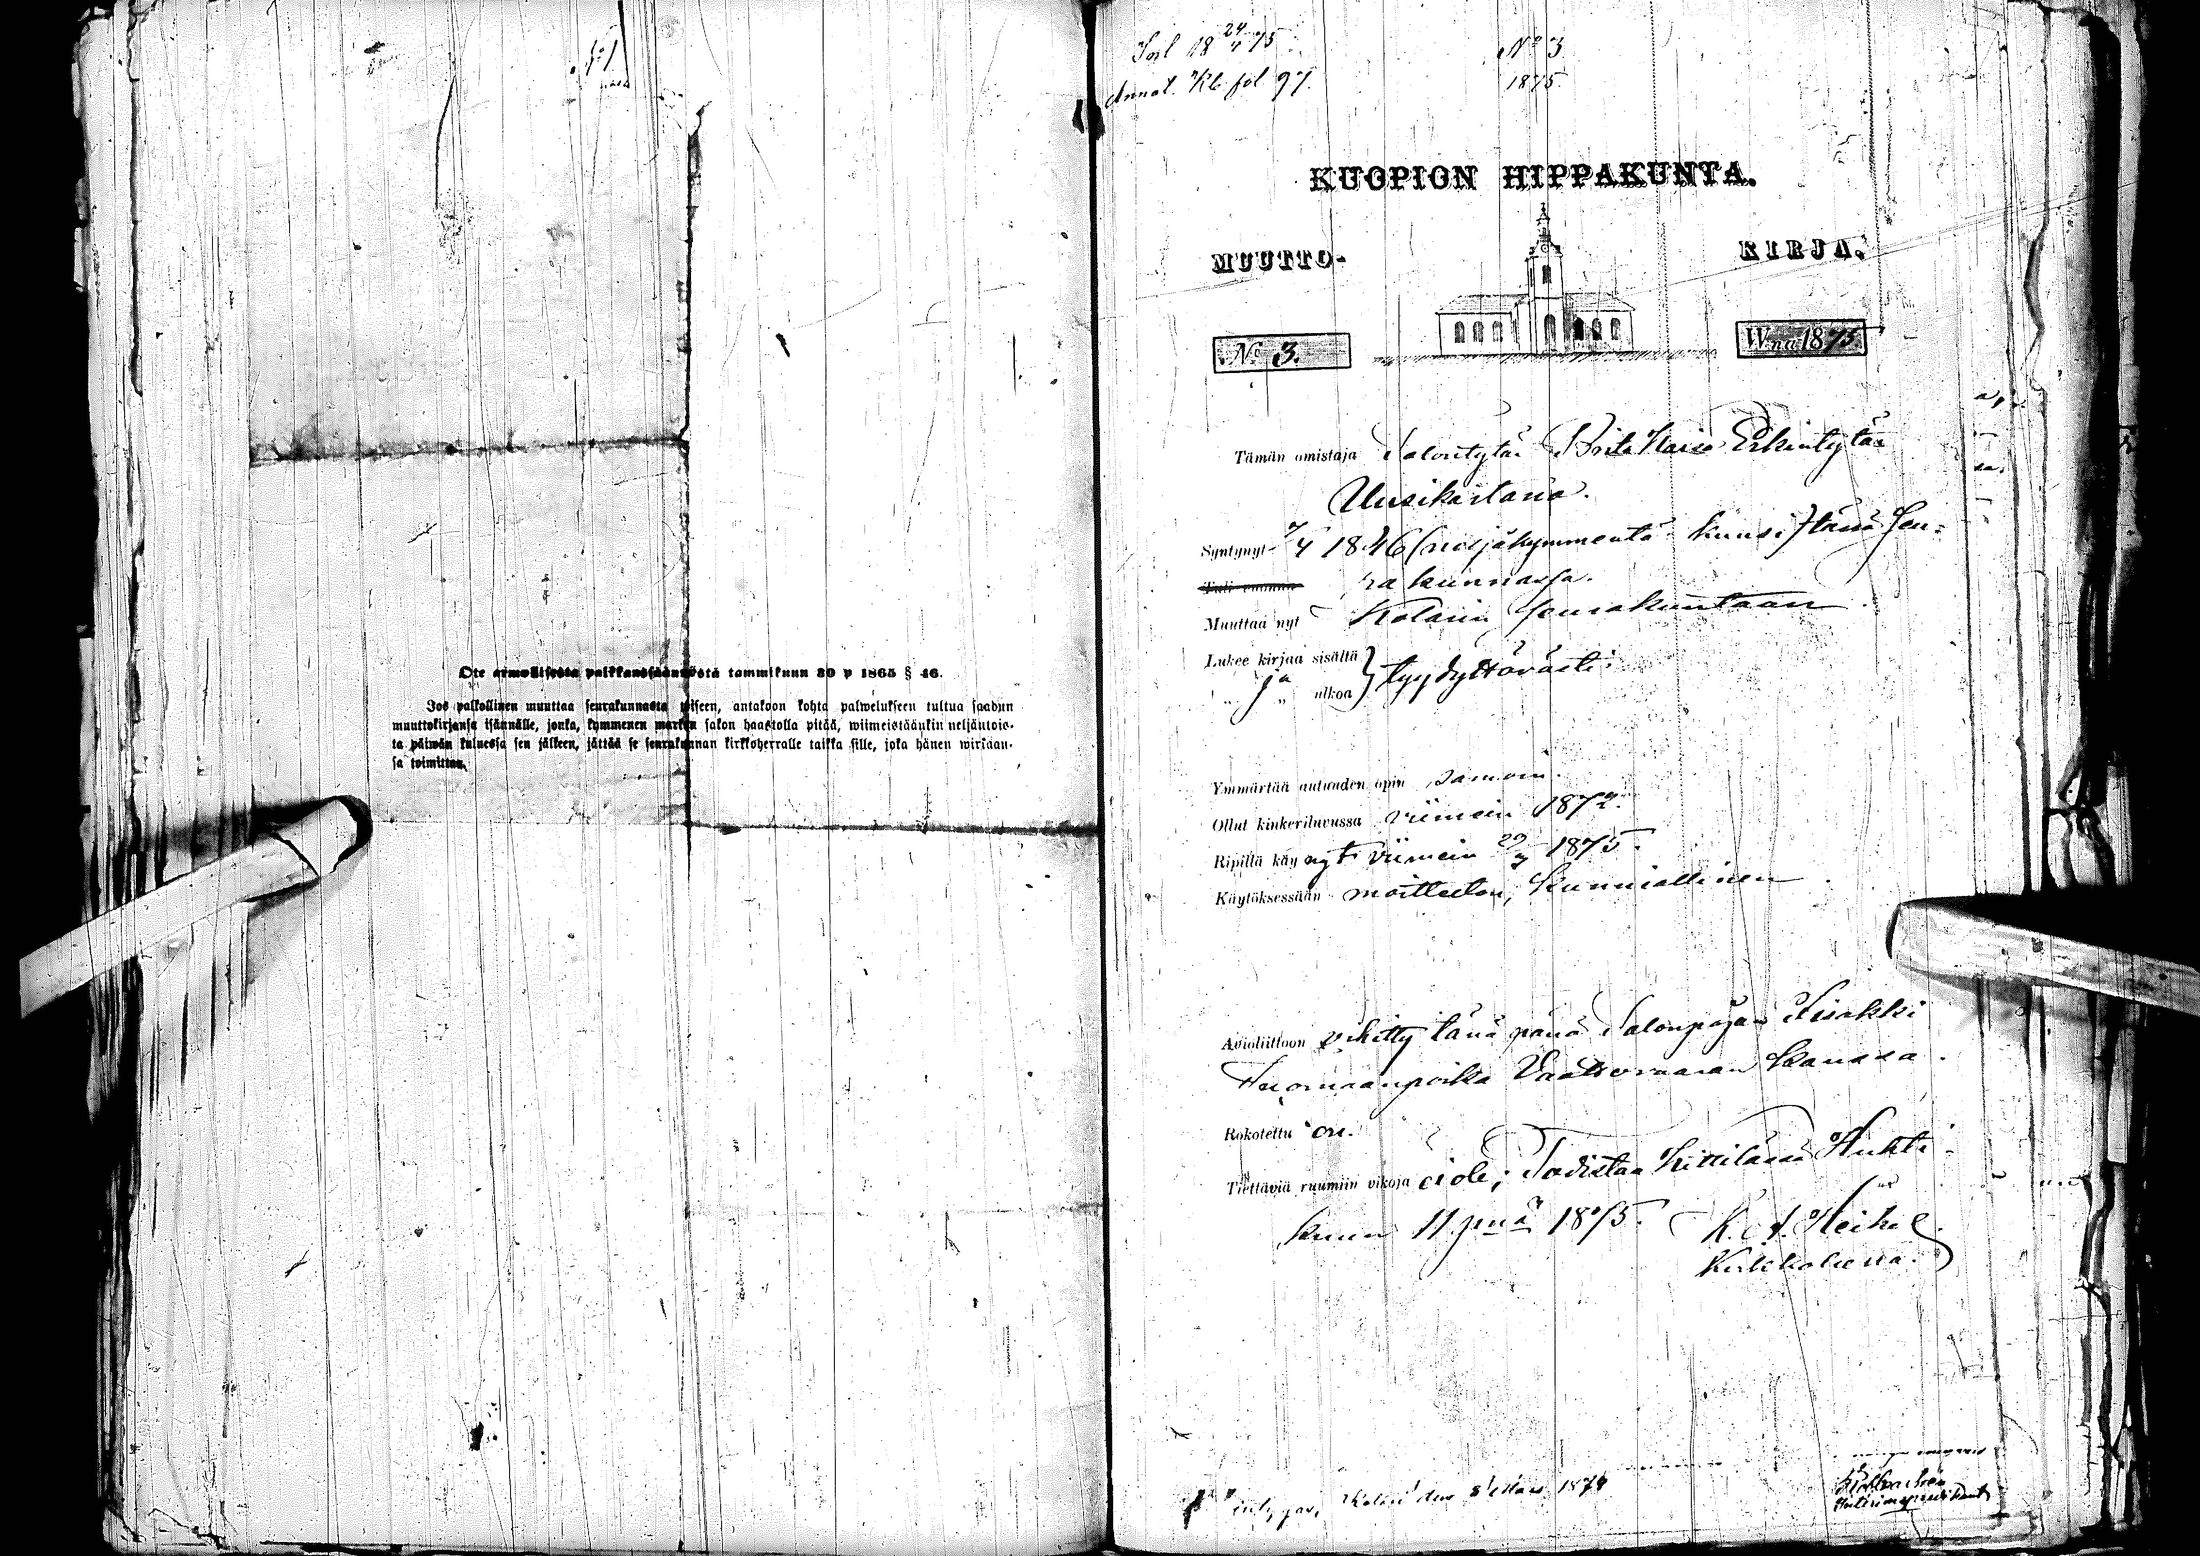 Ote armollisesta palkkaussäännöstä tammikuun 30 p 1865 § 46.
Jos palkollinen muuttaa seurakunnasta toiseen, antakoon kohta palwelukseen tultua saadun
muuttokirjansa isännälle, jonka, kymmenen markan sakon haastolla pitää, wiimeistäänkin neljäntois-
ta päiwän kuluessa sen jälkeen, jättää se seurakunnan kirkkoherralle taikka sille, joka hänen wirkaan-
sa toimittaa.
18 24/4 75
Annot. Kb. fol 97.
No 3
1875.
KUOPION HIPPAKUNTA.
MUUTTO- KIRJA.
No 3. W:na 1875
Tämän omistaja Talontytär Brita Maria Erkintytär
Uusikartano.
Syntynyt 7/4 1846 (neljäkymmentä kuusi) tässä Seu-
Tuli vuonna rakunnassa.
Muuttaa nyt Kolarin seurakuntaan.
Lukee kirjaa sisältä
ja ulkoa } tyydyttävästi.
Ymmärtää autuuden opin samoin.
Ollut kinkeriluvussa viimein 1872.
Ripillä käynyt viimein 1875.
Käytöksessään moitteeton, kunniallinen.
Avioliittoon vihitty tänä pänä Talonpojan Iisakki
Tuomaanpoika Vaattovaaran kanssa.
Rokotettu on.
Tiettäviä ruumiin vikoja ei ole; Todistaa Kittilässä Huhti-
kuun 11 pnä 1875. K. A. Heikel.
Kirkkoherra.
Kolari den 8 Mars 1874